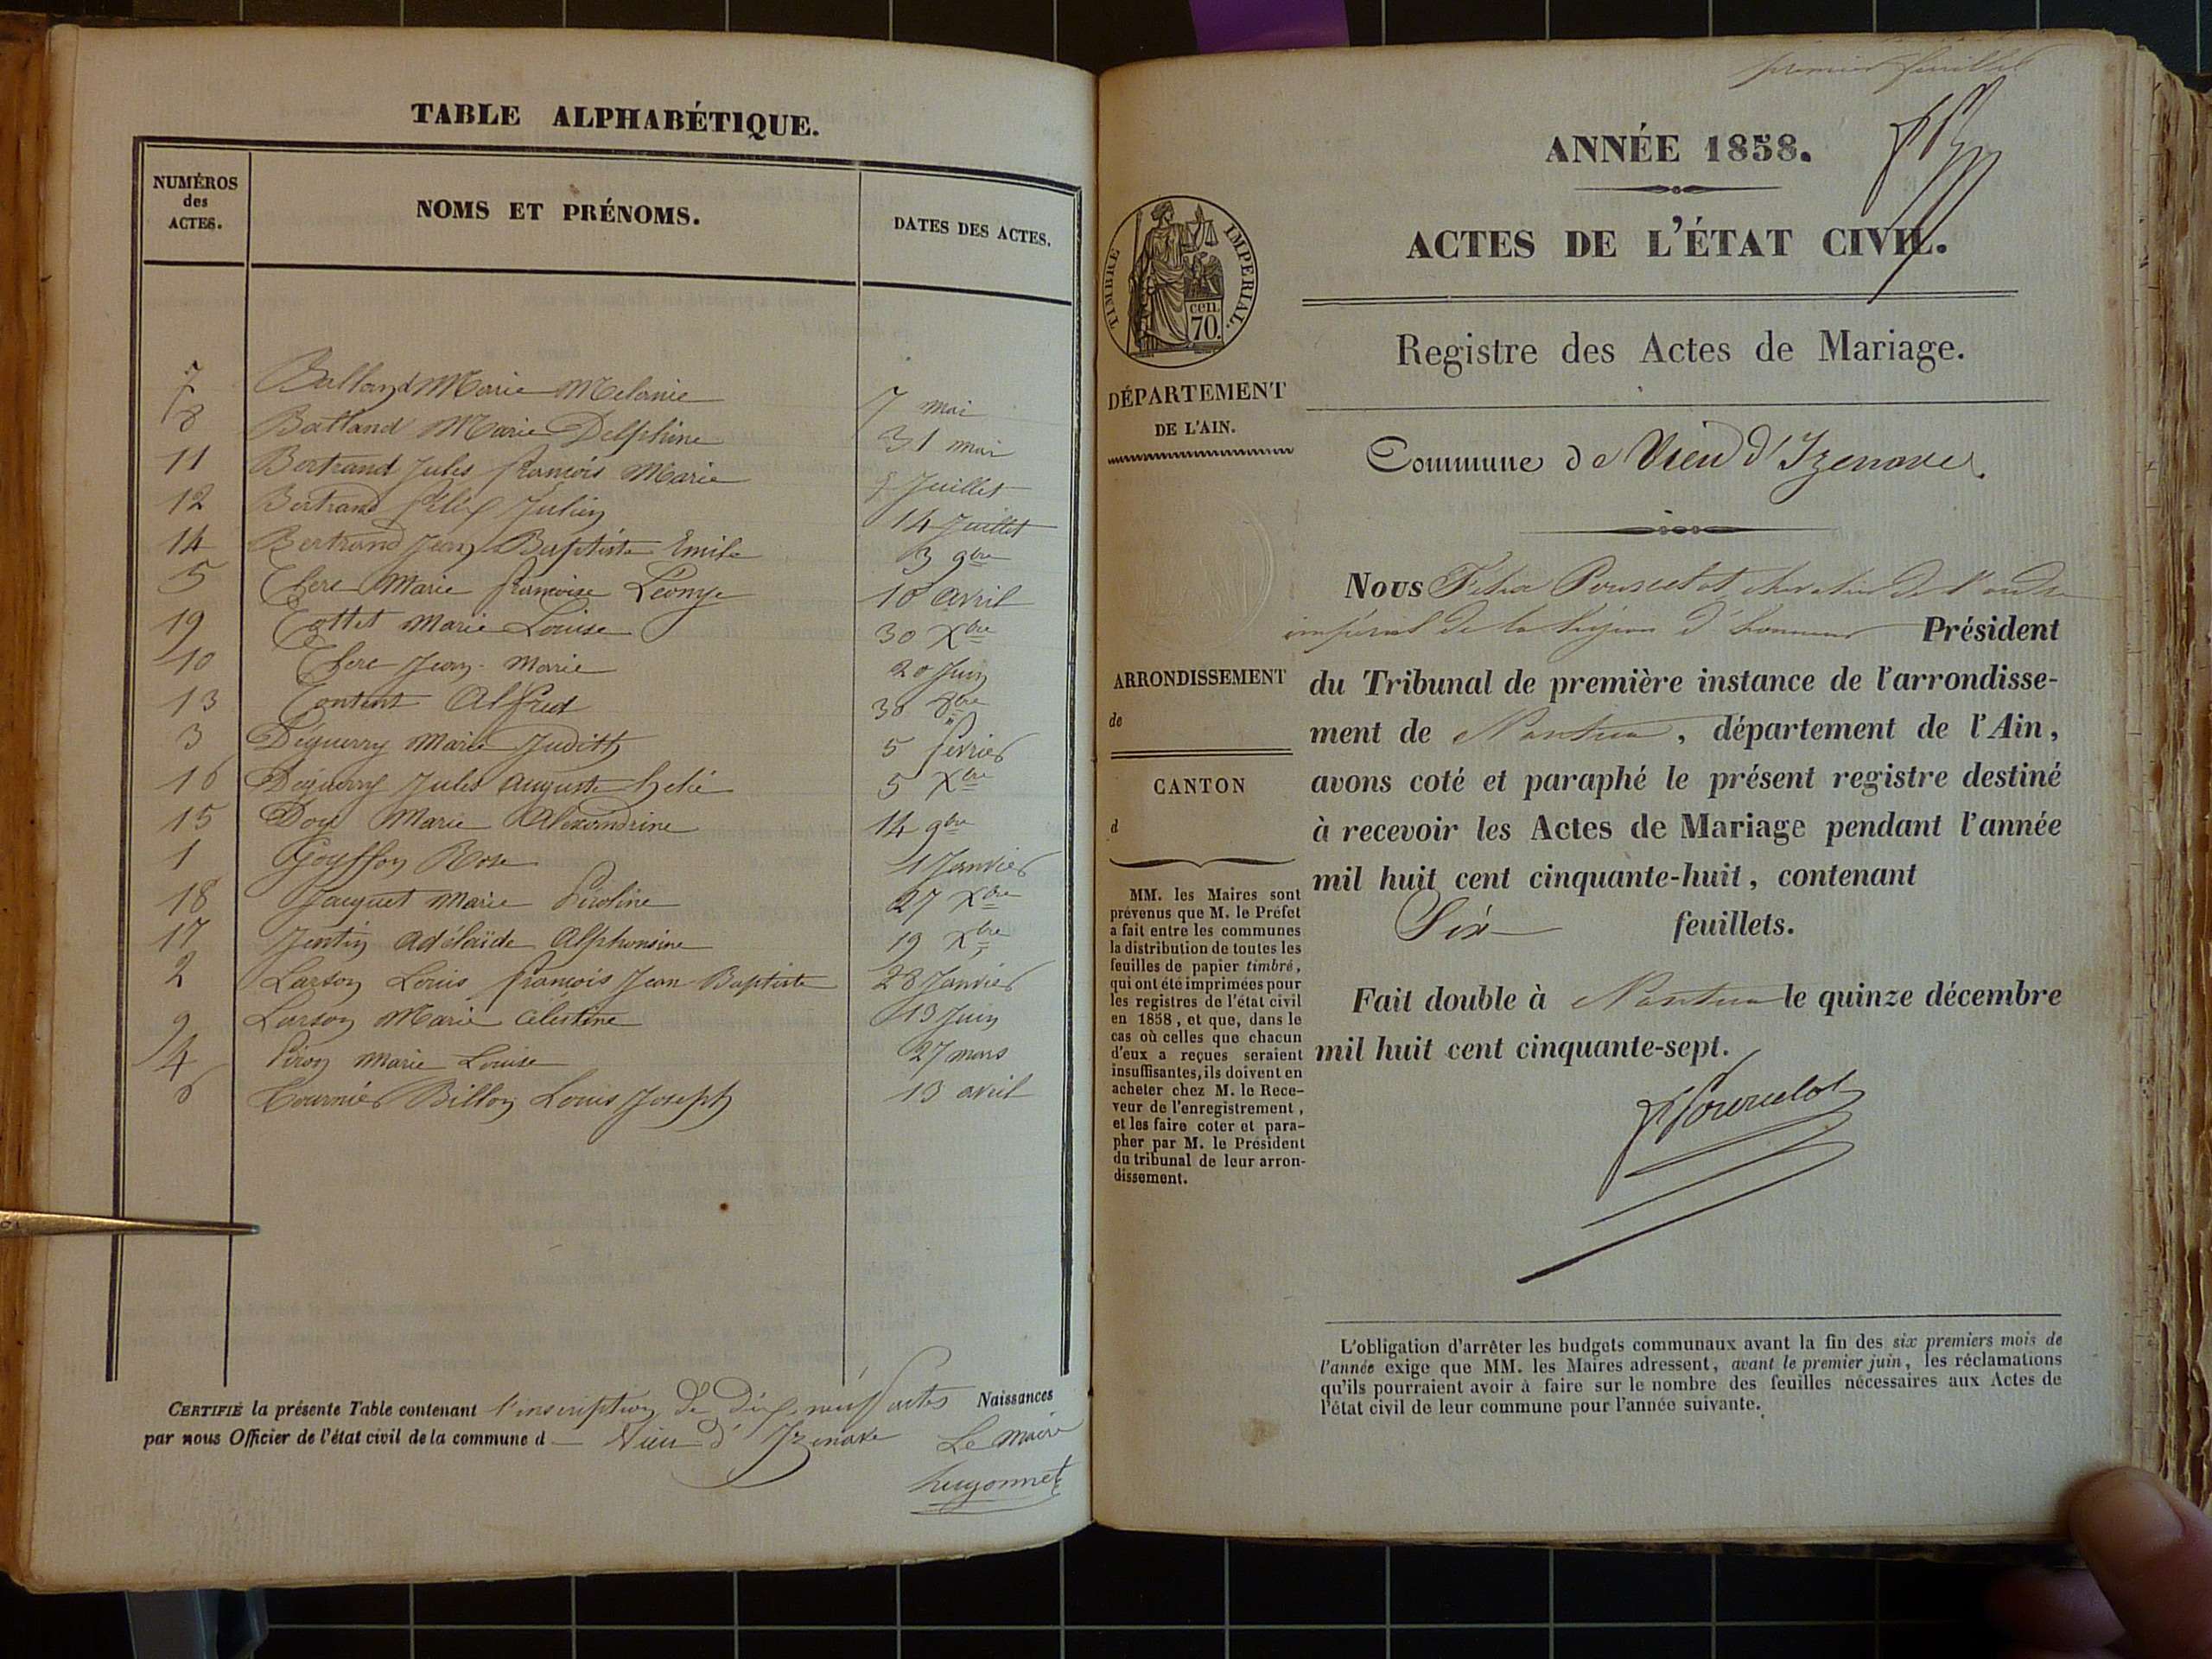 TABLE ALPHABÉTIQUE.
NUMÉROS des ACTES. NOMS ET PRÉNOMS. DATES DES ACTES.
7 Balland Marie Melanie 7 mai
8 Balland Marie Delphine 31 mai
11 Bertrand Jules françois Marie 5 Juillet
12 Bertrand félix Julien 14 Juillet
14 Bertrand Jean Baptiste Emile 3 9bre
5 Clerc Marie françoise Léonye 10 avril
19 Cottet Marie Louise 30 Xbre
10 Clerc Jean-Marie 20 Juin
13 Content Alfred 30 8bre
3 Deguerry Marie Judith 5 fevrier
16 Deguerry Jules auguste 5 Xbre
15 Marie Alexandrine 14 9bre
1 Goyffon Rose 1 Janvier
18 Jacquet Marie 27 Xbre
17 Jentin Adélaïde Alphonsine 19 Xbre
2 Larson Louis françois Jean Baptiste 28 Janvier
9 Larson Marie Célestine 13 Juin
4 Piron Marie Louise 27 mars
6 Tournier Billon Louis Joseph 13 avril
CERTIFIÉ la présente Table contenant l'inscription de dix neuf actes Naissances
par nous Officier de l'état civil de la commune d Vieu d'Izenave Le Maire
hugonnet
premier feuillet
ANNÉE 1858.
ACTES DE L'ÉTAT CIVIL.
TIMBRE IMPERIAL.
cen. 70.
Registre des Actes de Mariage.
DÉPARTEMENT
DE L'AIN.
Commune de Vieu d'Izenave
Nous Felix Pourcelot chevalier de l'ordre
impérial de la légion d'honneur Président
du Tribunal de première instance de l'arrondisse-
ment de Nantua, département de l'Ain,
avons coté et paraphé le présent registre destiné
à recevoir les Actes de Mariage pendant l'année
mil huit cent cinquante-huit, contenant
Six feuillets.
Fait double à Nantua le quinze décembre
mil huit cent cinquante-sept.
Pourcelot
ARRONDISSEMENT
de
CANTON
d
MM. les Maires sont
prévenus que M. le Préfet
a fait entre les communes
la distribution de toutes les
feuilles de papier timbré,
qui ont été imprimées pour
les registres de l'état civil
en 1858, et que, dans le
cas où celles que chacun
d'eux a reçues seraient
insuffisantes, ils doivent en
acheter chez M. le Rece-
veur de l'enregistrement,
et les faire coter et para-
pher par M. le Président
du tribunal de leur arron-
dissement.
L'obligation d'arrêter les budgets communaux avant la fin des six premiers mois de
l'année exige que MM. les Maires adressent, avant le premier juin, les réclamations
qu'ils pourraient avoir à faire sur le nombre des feuilles nécessaires aux Actes de
l'état civil de leur commune pour l'année suivante.